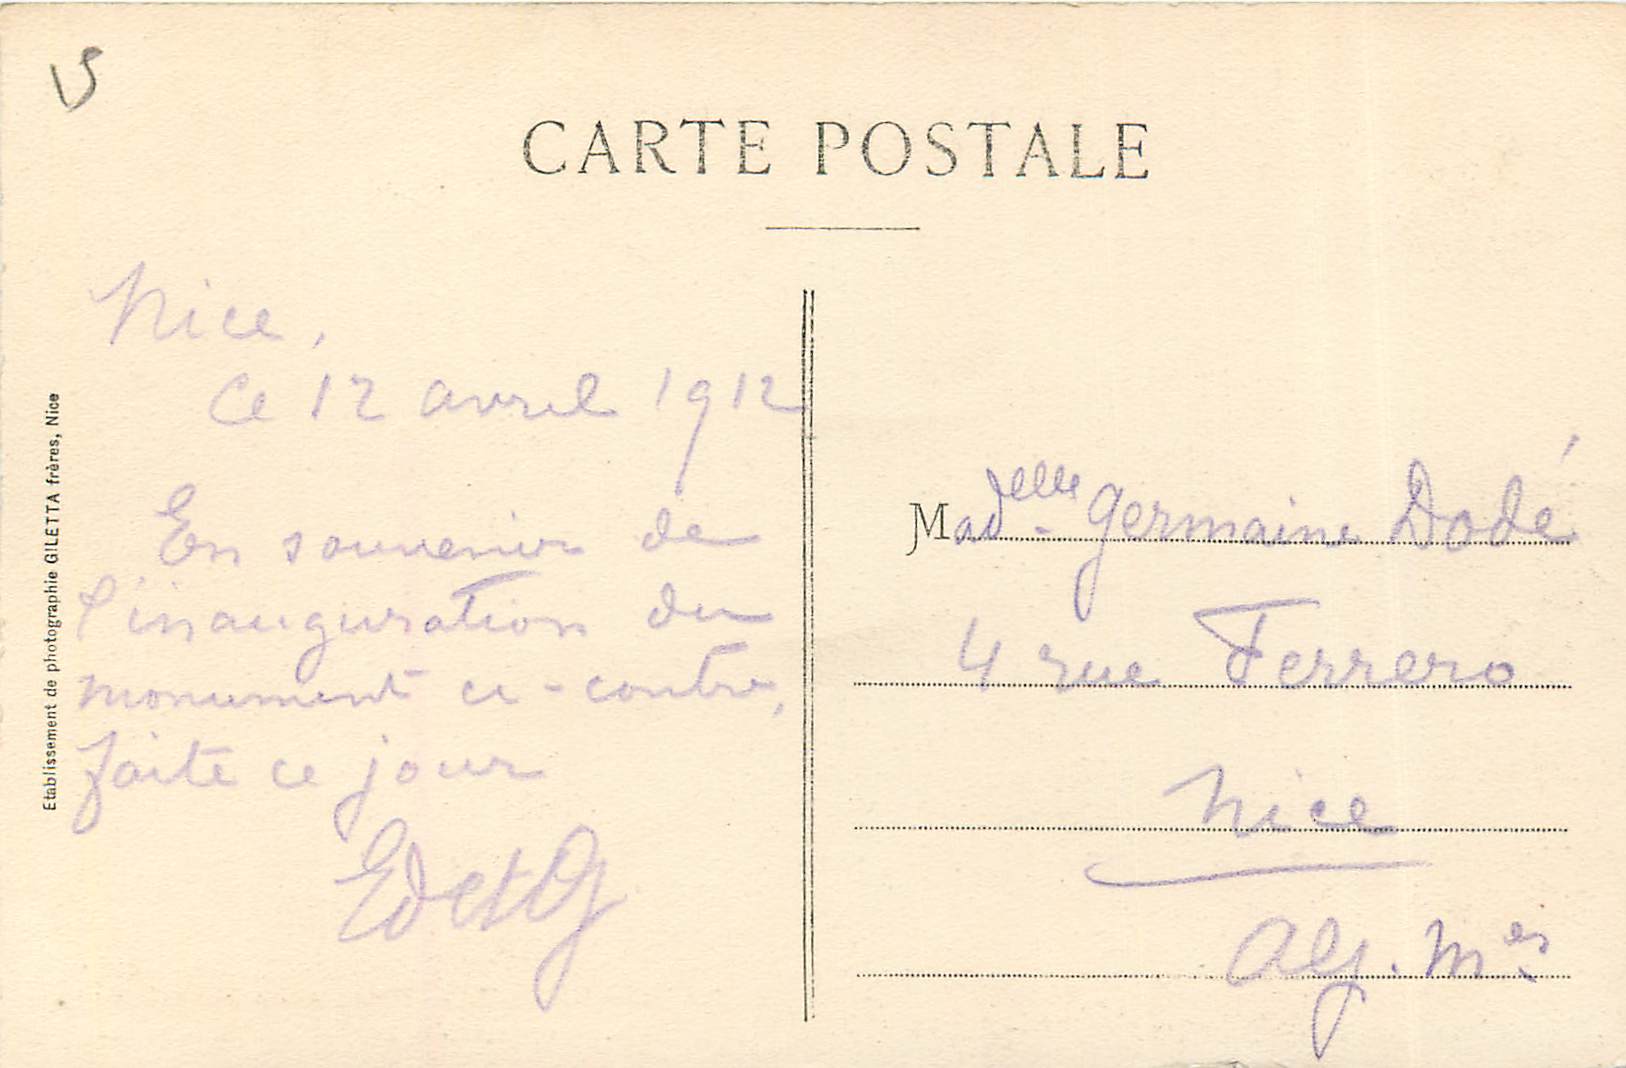 15
CARTE POSTALE
Nice,
Ce 12 avril 1912
En souvenir de
l'inauguration du
monument ci-contre,
faite ce jour
Etablissement de photographie GILETTA frères, Nice
Madelle Germaine Dodé
4 rue Ferrero
Nice
Alp. Mes